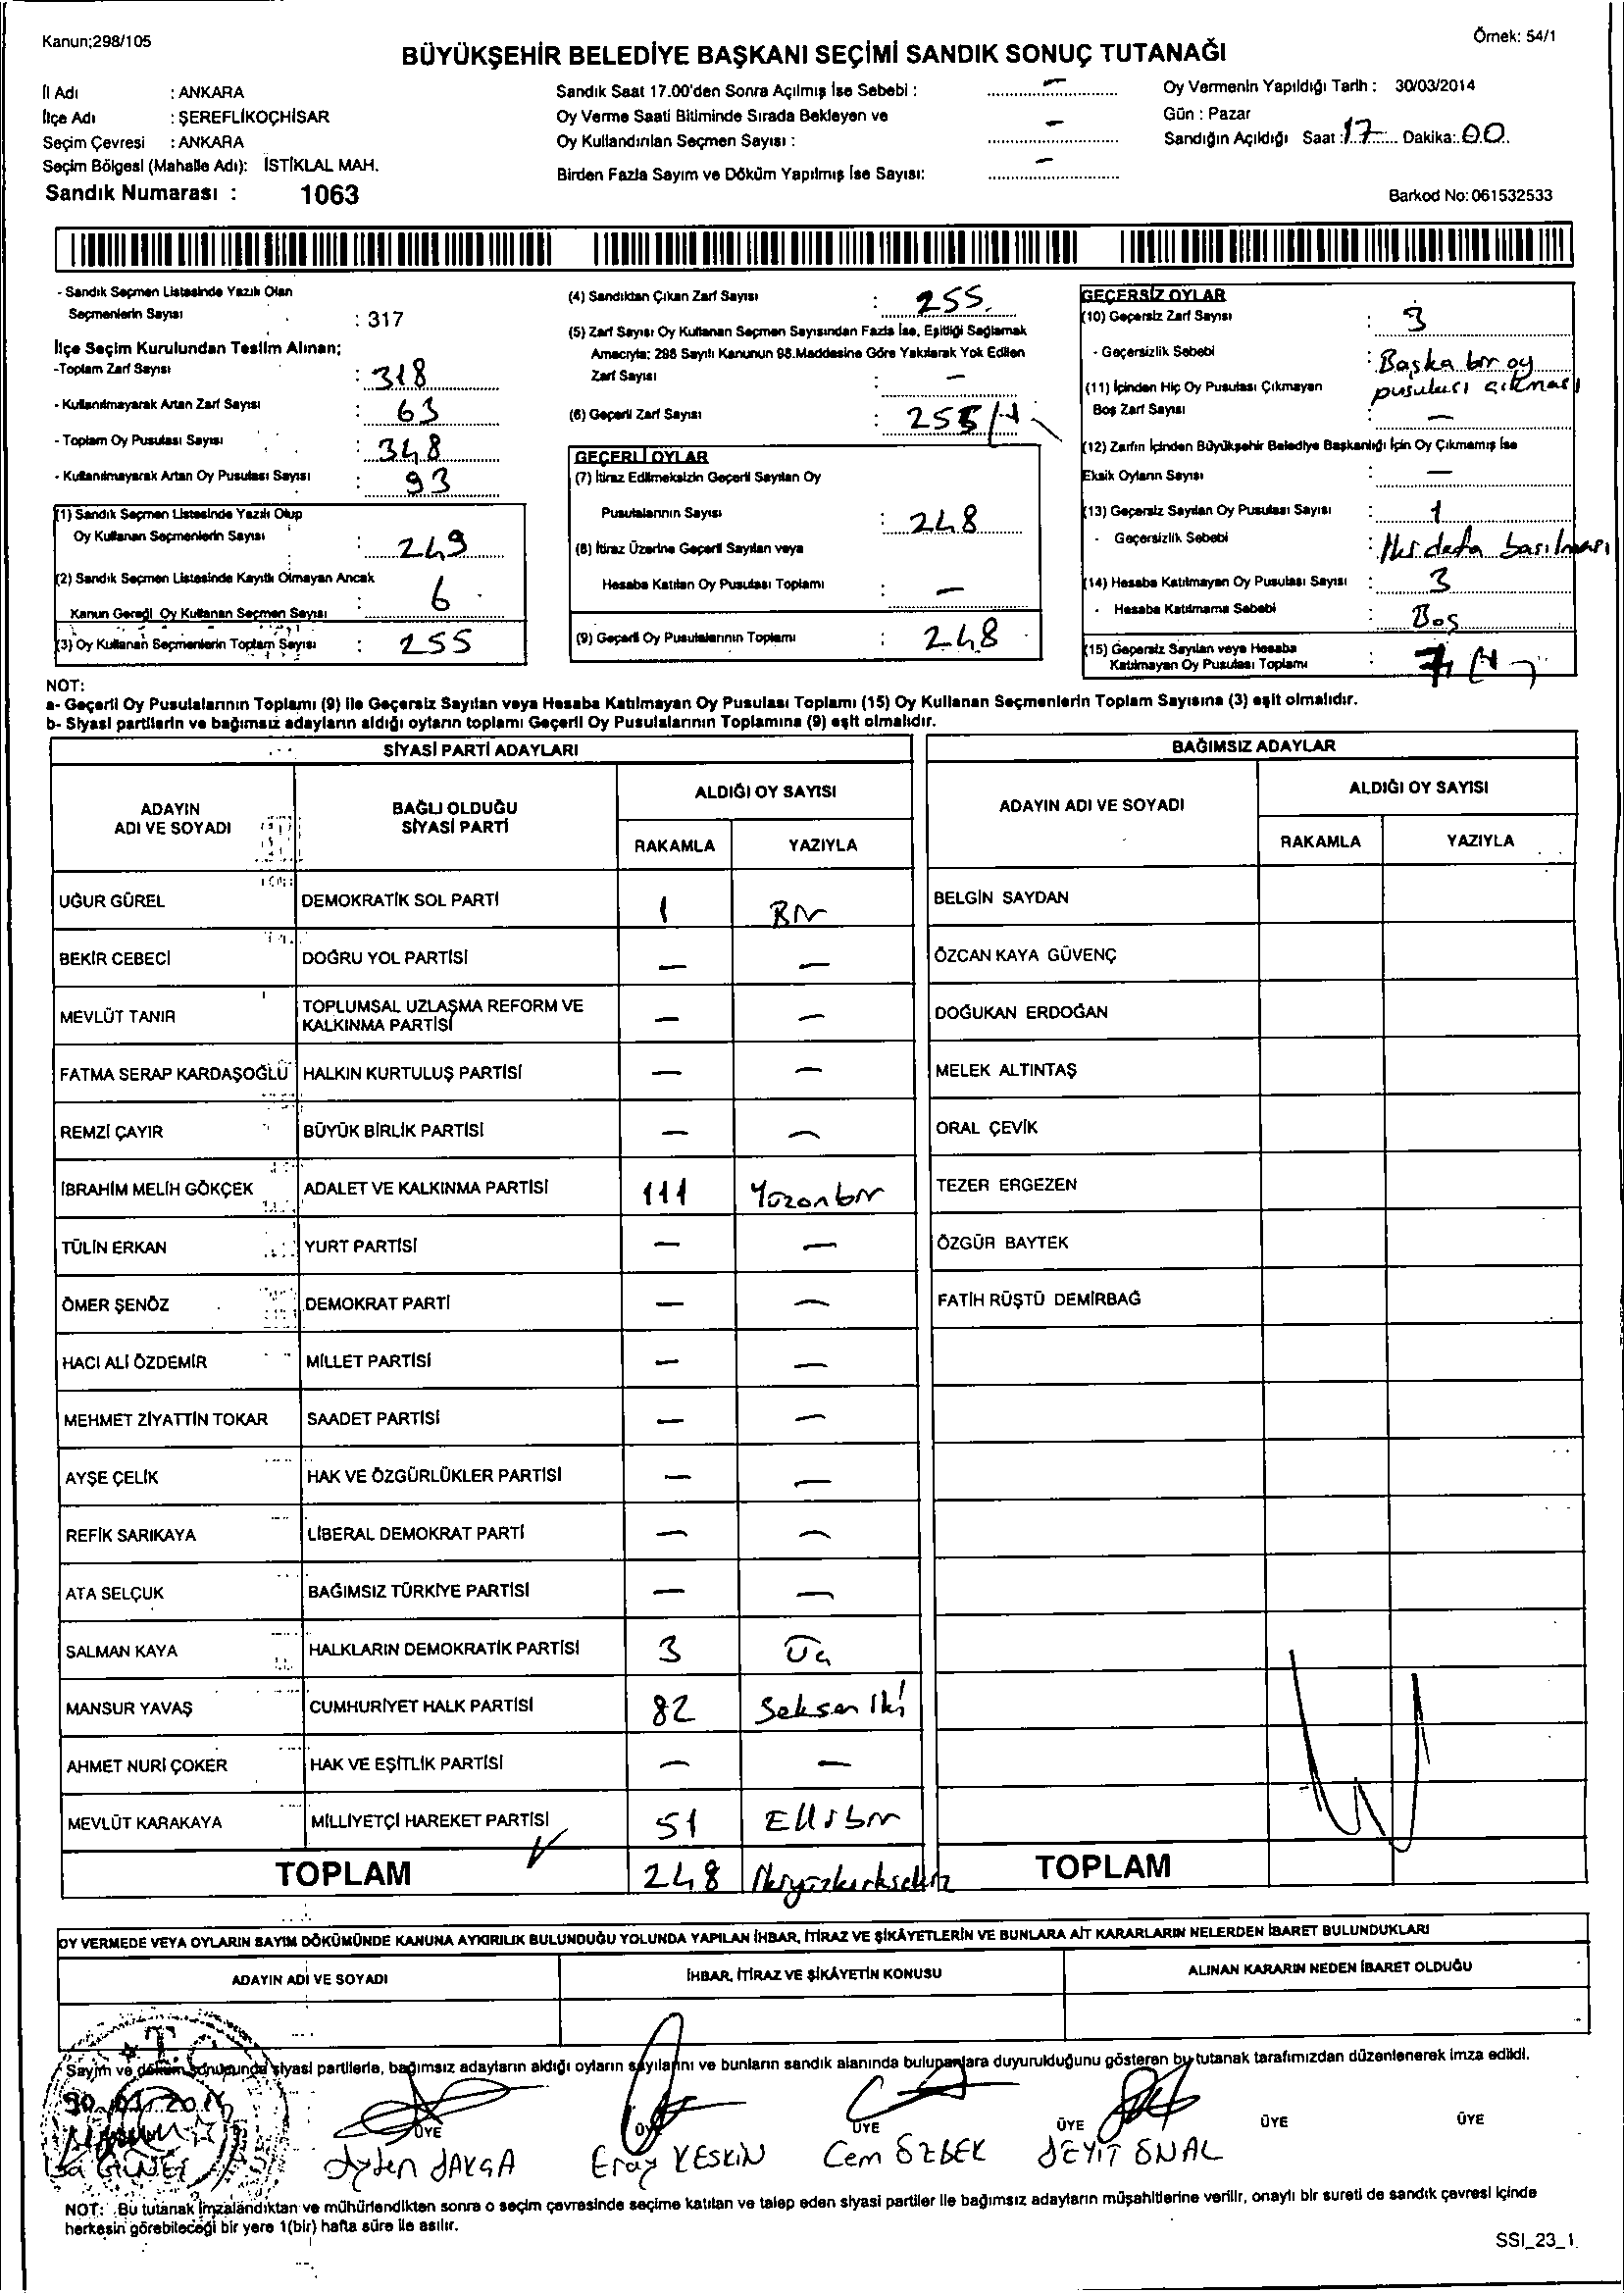 Kanun;298/105
Örnek: 54/1
BÜYÜKŞEHİR BELEDİYE BAŞKANI SEÇİMİ SANDIK SONUÇ TUTANAĞI
İl Adı : ANKARA
İlçe Adı : ŞEREFLİKOÇHİSAR
Seçim Çevresi : ANKARA
Seçim Bölgesi (Mahalle Adı): İSTİKLAL MAH.
Sandık Numarası : 1063
Sandık Saat 17.00'den Sonra Açılmış İse Sebebi : –
Oy Verme Saati Bitiminde Sırada Bekleyen ve
Oy Kullandırılan Seçmen Sayısı : –
Birden Fazla Sayım ve Döküm Yapılmış İse Sayısı: –
Oy Vermenin Yapıldığı Tarih : 30/03/2014
Gün : Pazar
Sandığın Açıldığı Saat : 17 Dakika: 00
Barkod No: 061532533
- Sandık Seçmen Listesinde Yazılı Olan
Seçmenlerin Sayısı : 317
İlçe Seçim Kurulundan Teslim Alınan;
-Toplam Zarf Sayısı : 318
- Kullanılmayarak Artan Zarf Sayısı : 63
- Toplam Oy Pusulası Sayısı : 348
- Kullanılmayarak Artan Oy Pusulası Sayısı : 93
(1) Sandık Seçmen Listesinde Yazılı Olup
Oy Kullanan Seçmenlerin Sayısı : 249
(2) Sandık Seçmen Listesinde Kayıtlı Olmayan Ancak
Kanun Gereği Oy Kullanan Seçmen Sayısı : 6
(3) Oy Kullanan Seçmenlerin Toplam Sayısı : 255
(4) Sandıktan Çıkan Zarf Sayısı : 255
(5) Zarf Sayısı Oy Kullanan Seçmen Sayısından Fazla İse, Eşitliği Sağlamak
Amacıyla; 298 Sayılı Kanunun 98.Maddesine Göre Yakılarak Yok Edilen
Zarf Sayısı : –
(6) Geçerli Zarf Sayısı : 255
GEÇERLİ OYLAR
(7) İtiraz Edilmeksizin Geçerli Sayılan Oy
Pusulalarının Sayısı : 248
(8) İtiraz Üzerine Geçerli Sayılan veya
Hesaba Katılan Oy Pusulası Toplamı : –
(9) Geçerli Oy Pusulalarının Toplamı : 248
GEÇERSİZ OYLAR
(10) Geçersiz Zarf Sayısı : 3
- Geçersizlik Sebebi : Başka bir oy
pusulası çıkması
(11) İçinden Hiç Oy Pusulası Çıkmayan
Boş Zarf Sayısı : –
(12) Zarfın İçinden Büyükşehir Belediye Başkanlığı İçin Oy Çıkmamış İse
Eksik Oyların Sayısı : –
(13) Geçersiz Sayılan Oy Pusulası Sayısı : 1
- Geçersizlik Sebebi : defa basılması
(14) Hesaba Katılmayan Oy Pusulası Sayısı : 3
- Hesaba Katılmama Sebebi : Boş
(15) Geçersiz Sayılan veya Hesaba
Katılmayan Oy Pusulası Toplamı : 7
NOT:
a- Geçerli Oy Pusulalarının Toplamı (9) ile Geçersiz Sayılan veya Hesaba Katılmayan Oy Pusulası Toplamı (15) Oy Kullanan Seçmenlerin Toplam Sayısına (3) eşit olmalıdır.
b- Siyasi partilerin ve bağımsız adayların aldığı oyların toplamı Geçerli Oy Pusulalarının Toplamına (9) eşit olmalıdır.
SİYASİ PARTİ ADAYLARI
ADAYIN ADI VE SOYADI BAĞLI OLDUĞU SİYASİ PARTİ ALDIĞI OY SAYISI
RAKAMLA YAZIYLA
UĞUR GÜREL DEMOKRATİK SOL PARTİ 1 Bir
BEKİR CEBECİ DOĞRU YOL PARTİSİ – –
MEVLÜT TANIR TOPLUMSAL UZLAŞMA REFORM VE KALKINMA PARTİSİ – –
FATMA SERAP KARDAŞOĞLU HALKIN KURTULUŞ PARTİSİ – –
REMZİ ÇAYIR BÜYÜK BİRLİK PARTİSİ – –
İBRAHİM MELİH GÖKÇEK ADALET VE KALKINMA PARTİSİ 111 Yüzonbir
TÜLİN ERKAN YURT PARTİSİ – –
ÖMER ŞENÖZ DEMOKRAT PARTİ – –
HACI ALİ ÖZDEMİR MİLLET PARTİSİ – –
MEHMET ZİYATTİN TOKAR SAADET PARTİSİ – –
AYŞE ÇELİK HAK VE ÖZGÜRLÜKLER PARTİSİ – –
REFİK SARIKAYA LİBERAL DEMOKRAT PARTİ – –
ATA SELÇUK BAĞIMSIZ TÜRKİYE PARTİSİ – –
SALMAN KAYA HALKLARIN DEMOKRATİK PARTİSİ 3 Üç
MANSUR YAVAŞ CUMHURİYET HALK PARTİSİ 82 Seksen iki
AHMET NURİ ÇOKER HAK VE EŞİTLİK PARTİSİ – –
MEVLÜT KARAKAYA MİLLİYETÇİ HAREKET PARTİSİ 51 Ellibir
TOPLAM 248 İkiyüzkırksekiz
BAĞIMSIZ ADAYLAR
ADAYIN ADI VE SOYADI ALDIĞI OY SAYISI
RAKAMLA YAZIYLA
BELGİN SAYDAN
ÖZCAN KAYA GÜVENÇ
DOĞUKAN ERDOĞAN
MELEK ALTINTAŞ
ORAL ÇEVİK
TEZER ERGEZEN
ÖZGÜR BAYTEK
FATİH RÜŞTÜ DEMİRBAĞ
TOPLAM
OY VERMEDE VEYA OYLARIN SAYIM DÖKÜMÜNDE KANUNA AYKIRILIK BULUNDUĞU YOLUNDA YAPILAN İHBAR, İTİRAZ VE ŞİKÂYETLERİN VE BUNLARA AİT KARARLARIN NELERDEN İBARET BULUNDUKLARI
ADAYIN ADI VE SOYADI İHBAR, İTİRAZ VE ŞİKÂYETİN KONUSU ALINAN KARARIN NEDEN İBARET OLDUĞU
Sayım ve döküm sonucunda siyasi partilerle, bağımsız adayların aldığı oyların sayılarını ve bunların sandık alanında bulunanlara duyurulduğunu gösteren bu tutanak tarafımızdan düzenlenerek imza edildi.
ÜYE ÜYE ÜYE ÜYE ÜYE ÜYE
İsa GÜNEŞ Ayten Eray KESKİN Cem ÖZBEK SEYİT ÖNAL
NOT: Bu tutanak imzalandıktan ve mühürlendikten sonra o seçim çevresinde seçime katılan ve talep eden siyasi partiler ile bağımsız adayların müşahitlerine verilir, onaylı bir sureti de sandık çevresi içinde
herkesin görebileceği bir yere 1(bir) hafta süre ile asılır.
SSI_23_1